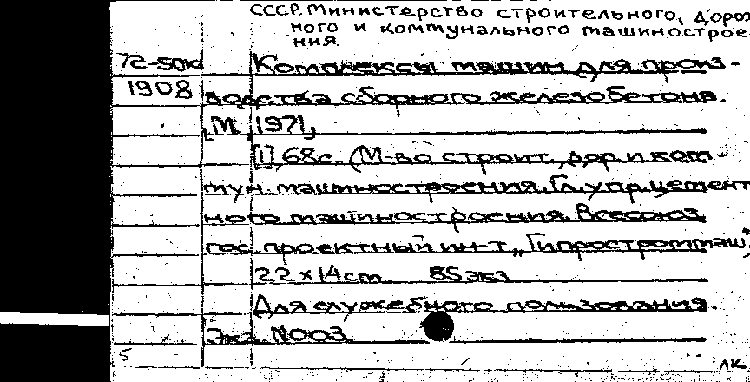 СССР. Министерство строительного, дорож
ного и коммунального машинострое-
ния.
72-50кд Комплексы машин для произ-
1908 водства сборного железобетона.
[М., 1971],
[1], 68 с. (М-во строит., дор. и ком-
мун. машиностроения. Гл. упр. цемент
ного машиностроения. Всесоюз.
гос. проектный ин-т „Гипростроммаш",
22×14 см 85 экз
Для служебного пользования.
Экз. N003
5 ЛК